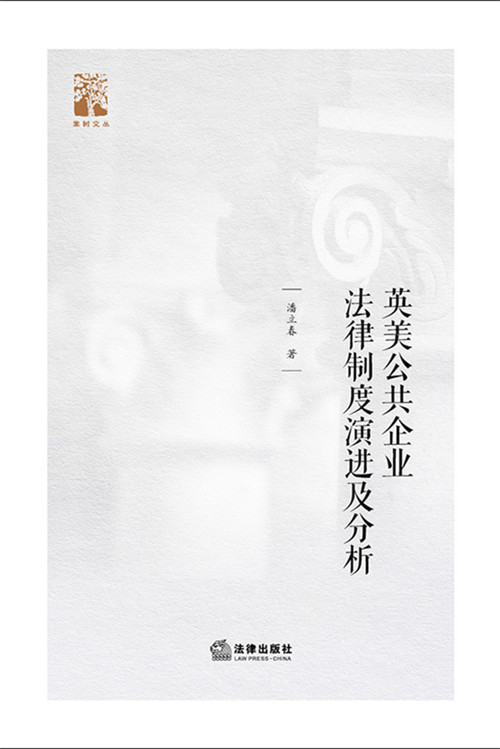 英美公共企业
法律制度演进及分析
潘立春 著
法律出版社
LAW PRESS·CHINA